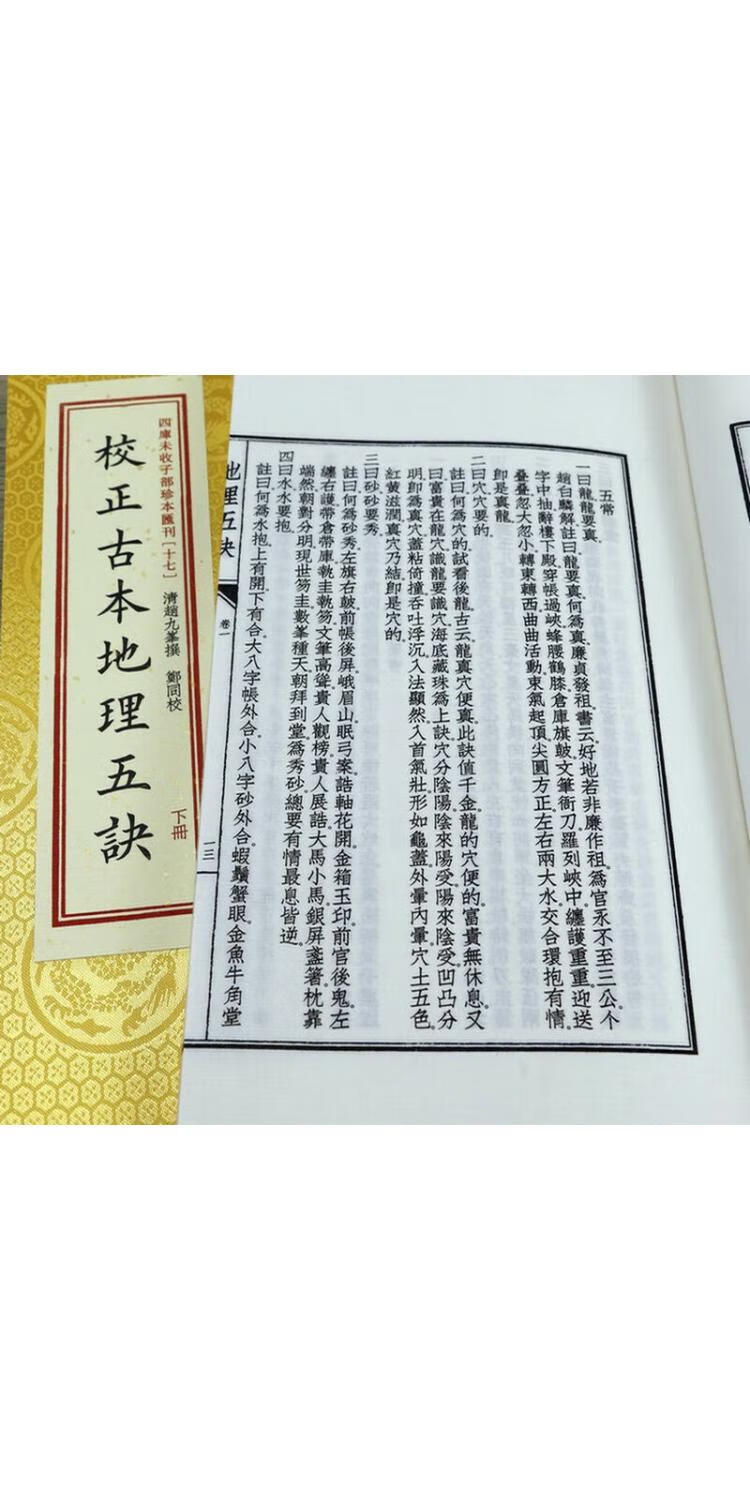 四庫未收子部珍本匯刊〔十七〕 清趙九峯撰 鄭同校
校正古本地理五訣
下冊
五常
一曰龍龍要真
趙白麟解註曰龍要真何為真廉貞發祖書云好地若非廉作祖為官永不至三公个
字中抽辭樓下殿穿帳過峽蜂腰鶴膝倉庫旗皷文筆衙刀羅列峽中纏護重重迎送
疊疊忽大忽小轉東轉西曲曲活動束氣起頂尖圓方正左右兩大水交合環抱有情
即是真龍
二曰穴穴要的
註曰何為穴的試看後龍古云龍真穴便真此訣值千金龍的穴便的富貴無休息又
曰富貴在龍穴識龍要識穴海底藏珠為上訣穴分陰陽陰來陽受陽來陰受凹凸分
明即為真穴蓋粘倚撞吞吐浮沉入法顯然入首氣壯形如龜蓋外暈內暈穴土五色
紅黃滋潤真穴乃結即是穴的
三曰砂砂要秀
註曰何為砂秀左旗右皷前帳後屏峨眉山眠弓案誥軸花開金箱玉印前官後鬼左
纏右護帶倉帶庫執圭執笏文筆高聳貴人觀榜貴人展誥大馬小馬銀屏盞箸枕靠
端然朝對分明現世笏圭數峯種天朝拜到堂為秀砂總要有情最忌皆逆
四曰水水要抱
註曰何為水抱上有開下有合大八字帳外合小八字砂外合蝦鬚蟹眼金魚牛角堂
地理五訣
卷一
一三